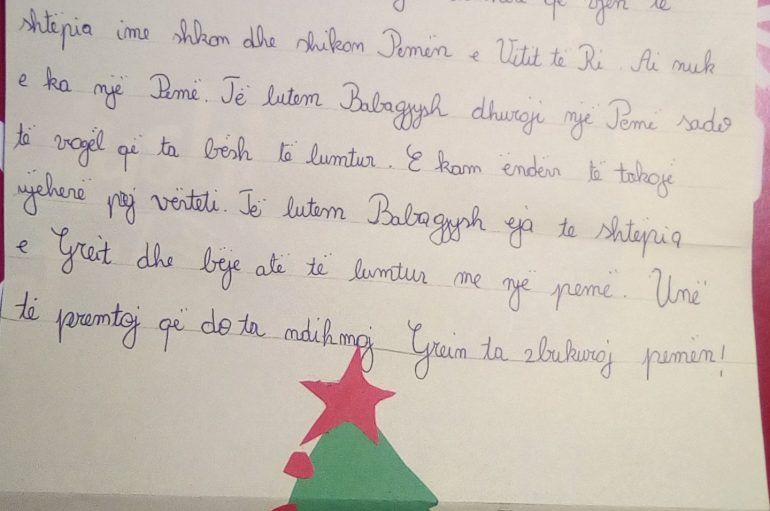 që vjen te
shtëpia ime shkon dhe shikon Pemën e Vitit të Ri. Ai nuk
e ka një Pemë. Të lutem Babagjysh dhuroji një Pemë sado
të vogël që ta bësh të lumtur. E kam ëndërr të takoje
njëherë prej vërteti. Të lutem Babagjysh eja te shtëpia
e Greit dhe bëje atë të lumtur me një pemë. Unë
të premtoj që do ta ndihmoj Grein ta zbukuroj pemën!